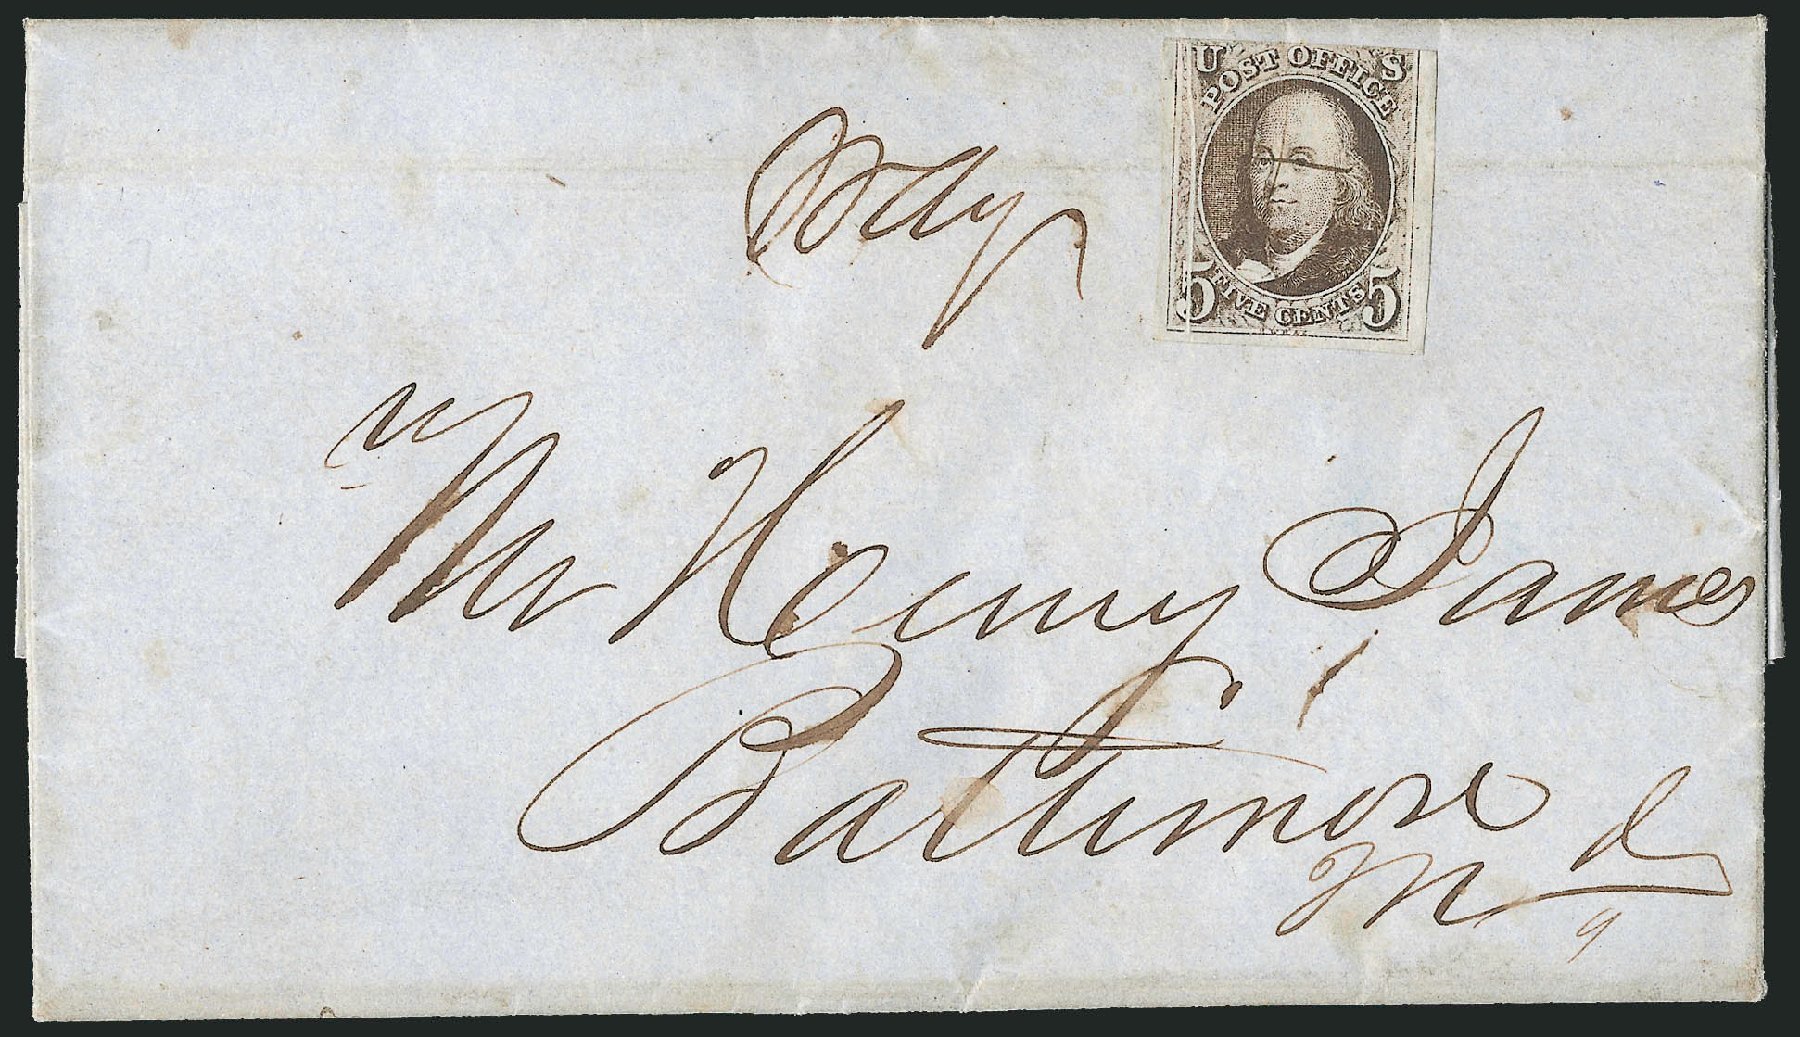 U S
POST OFFICE
5 FIVE CENTS 5
Mr Henry James
Baltimore
Md